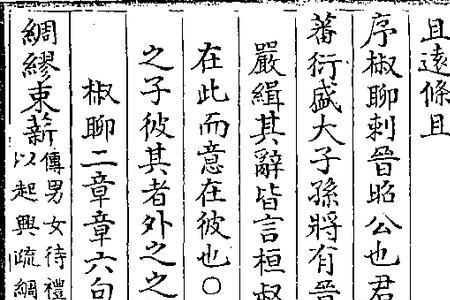 且遠條且
序椒聊刺晉昭公也君
蕃衍盛大子孫將有晉
嚴緝其辭皆言桓叔
在此而意在彼也○
之子彼其者外之之
椒聊二章章六句
綢繆束薪傳男女待禮
以起興疏綢